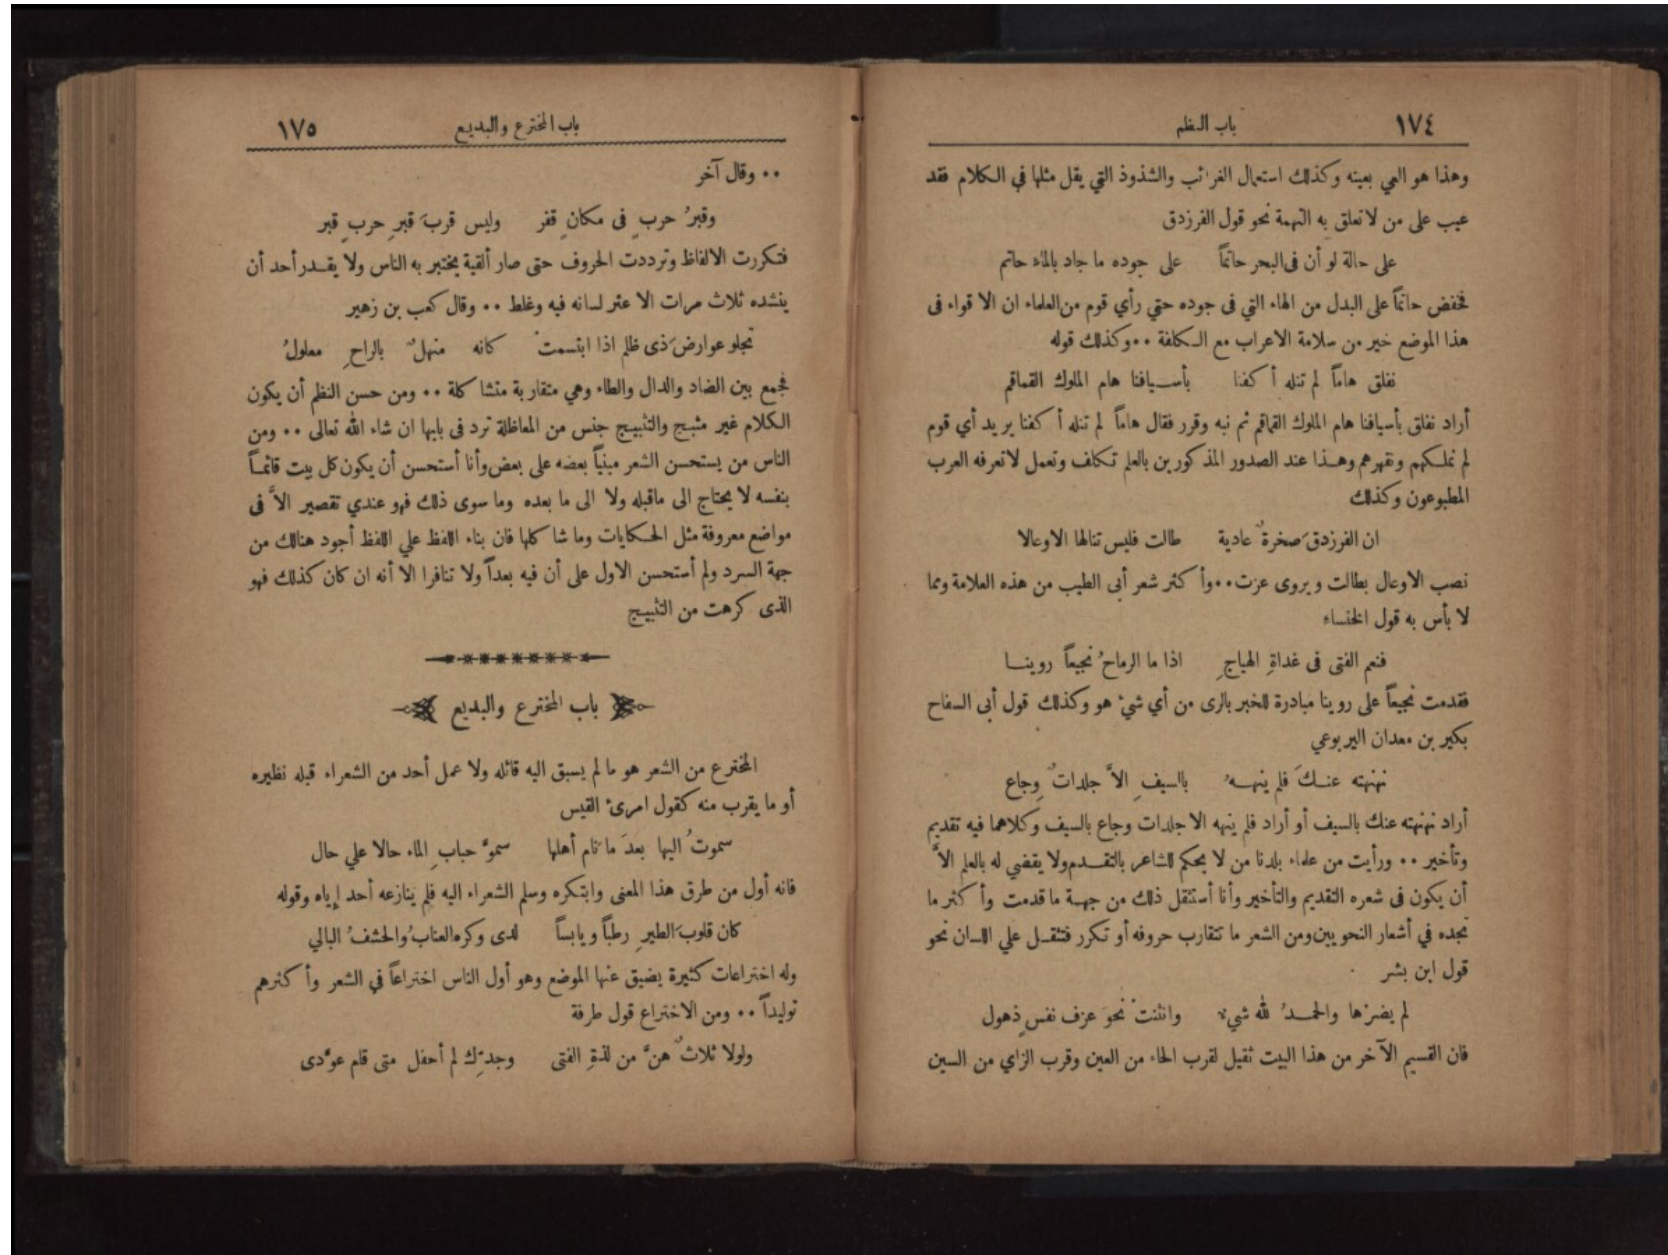 ١٧٤
باب النظم
وهذا هو العي بعينه وكذلك استعمال الغرائب والشذوذ التي يقل مثلها في الكلام فقد
عيب على من لا تعلق به التهمة نحو قول الفرزدق
على حالة لو أن فى البحر حاتماً على جوده ما جاد بالماء حاتم
فخفض حاتماً على البدل من الهاء التي فى جوده حتي رأي قوم من العلماء ان الاقواء فى
هذا الموضع خير من سلامة الاعراب مع الكلفة ٠٠ وكذلك قوله
نفلق هاماً لم تنله أكفنا بأسيافنا هام الملوك القماقم
أراد نفلق بأسيافنا هام الملوك القماقم ثم نبه وقرر فقال هاماً لم تنله أكفنا يريد أي قوم
لم نملكهم ونقهرهم وهذا عند الصدور المذكورين بالعلم تكلف وتعمل لا تعرفه العرب
المطبوعون وكذلك
ان الفرزدقَ صخرةٌ عادية طالت فليس تنالها الاوعالا
نصب الاوعال بطالت ويروى عزت ٠٠ وأكثر شعر أبى الطيب من هذه العلامة ومما
لا بأس به قول الخنساء
فنعم الفتى فى غداةِ الهياجِ اذا ما الرماحُ نجيعاً روينا
فقدمت نجيعاً على روينا مبادرة للخبر بالرى من أي شيء هو وكذلك قول أبى السفاح
بكير بن معدان اليربوعي
نهنهته عنكَ فلم ينههُ بالسيفِ الاَّ جلداتٌ وِجاع
أراد نهنهته عنك بالسيف أو أراد فلم ينهه الا جلدات وجاع بالسيف وكلاهما فيه تقديم
وتأخير ٠٠ ورأيت من علماء بلدنا من لا يحكم للشاعر بالتقدم ولا يقضي له بالعلم الاَّ
أن يكون فى شعره التقديم والتأخير وأنا أستثقل ذلك من جهة ما قدمت وأكثر ما
نجده في أشعار النحويين ومن الشعر ما تتقارب حروفه أو تكرر فتثقل علي اللسان نحو
قول ابن بشر
لم يضرْها والحمدُ لله شيء وانثنتْ نحوَ عزف نفسٍ ذهول
فان القسيم الآخر من هذا البيت ثقيل لقرب الحاء من العين وقرب الزاي من السين
باب المخترع والبديع
١٧٥
٠٠ وقال آخر
وقبرُ حربٍ فى مكانٍ قفر وليس قربَ قبرِ حربٍ قبر
فتكررت الالفاظ وترددت الحروف حتى صار ألقية يختبر به الناس ولا يقدر أحد أن
ينشده ثلاث مرات الا عثر لسانه فيه وغلط ٠٠ وقال كعب بن زهير
تجلو عوارضَ ذى ظلم اذا ابتسمتْ كانه منهلٌ بالراحِ معلولُ
فجمع بين الضاد والدال والظاء وهي متقاربة متشاكلة ٠٠ ومن حسن النظم أن يكون
الكلام غير مثبج والتثبيج جنس من المعاظلة ترد فى بابها ان شاء الله تعالى ٠٠ ومن
الناس من يستحسن الشعر مبنياً بعضه على بعض وأنا أستحسن أن يكون كل بيت قائماً
بنفسه لا يحتاج الى ماقبله ولا الى ما بعده وما سوى ذلك فهو عندي تقصير الاَّ فى
مواضع معروفة مثل الحكايات وما شاكلها فان بناء اللفظ علي اللفظ أجود هنالك من
جهة السرد ولم أستحسن الاول على أن فيه بعداً ولا تنافرا الا أنه ان كان كذلك فهو
الذى كرهت من التثبيج
باب المخترع والبديع
المخترع من الشعر هو ما لم يسبق اليه قائله ولا عمل أحد من الشعراء قبله نظيره
أو ما يقرب منه كقول امرئ القيس
سموتُ اليها بعدَ ما نام أهلها سموَّ حبابِ الماء حالا علي حال
فانه أول من طرق هذا المعنى وابتكره وسلم الشعراء اليه فلم ينازعه أحد إياه وقوله
كان قلوبَ الطيرِ رطباً ويابساً لدى وكره العنابُ والحشفُ البالي
وله اختراعات كثيرة يضيق عنها الموضع وهو أول الناس اختراعاً في الشعر وأكثرهم
توليداً ٠٠ ومن الاختراع قول طرفة
ولولا ثلاثٌ هنَّ من لذةِ الفتى وجدِّك لم أحفل متى قام عوَّدى